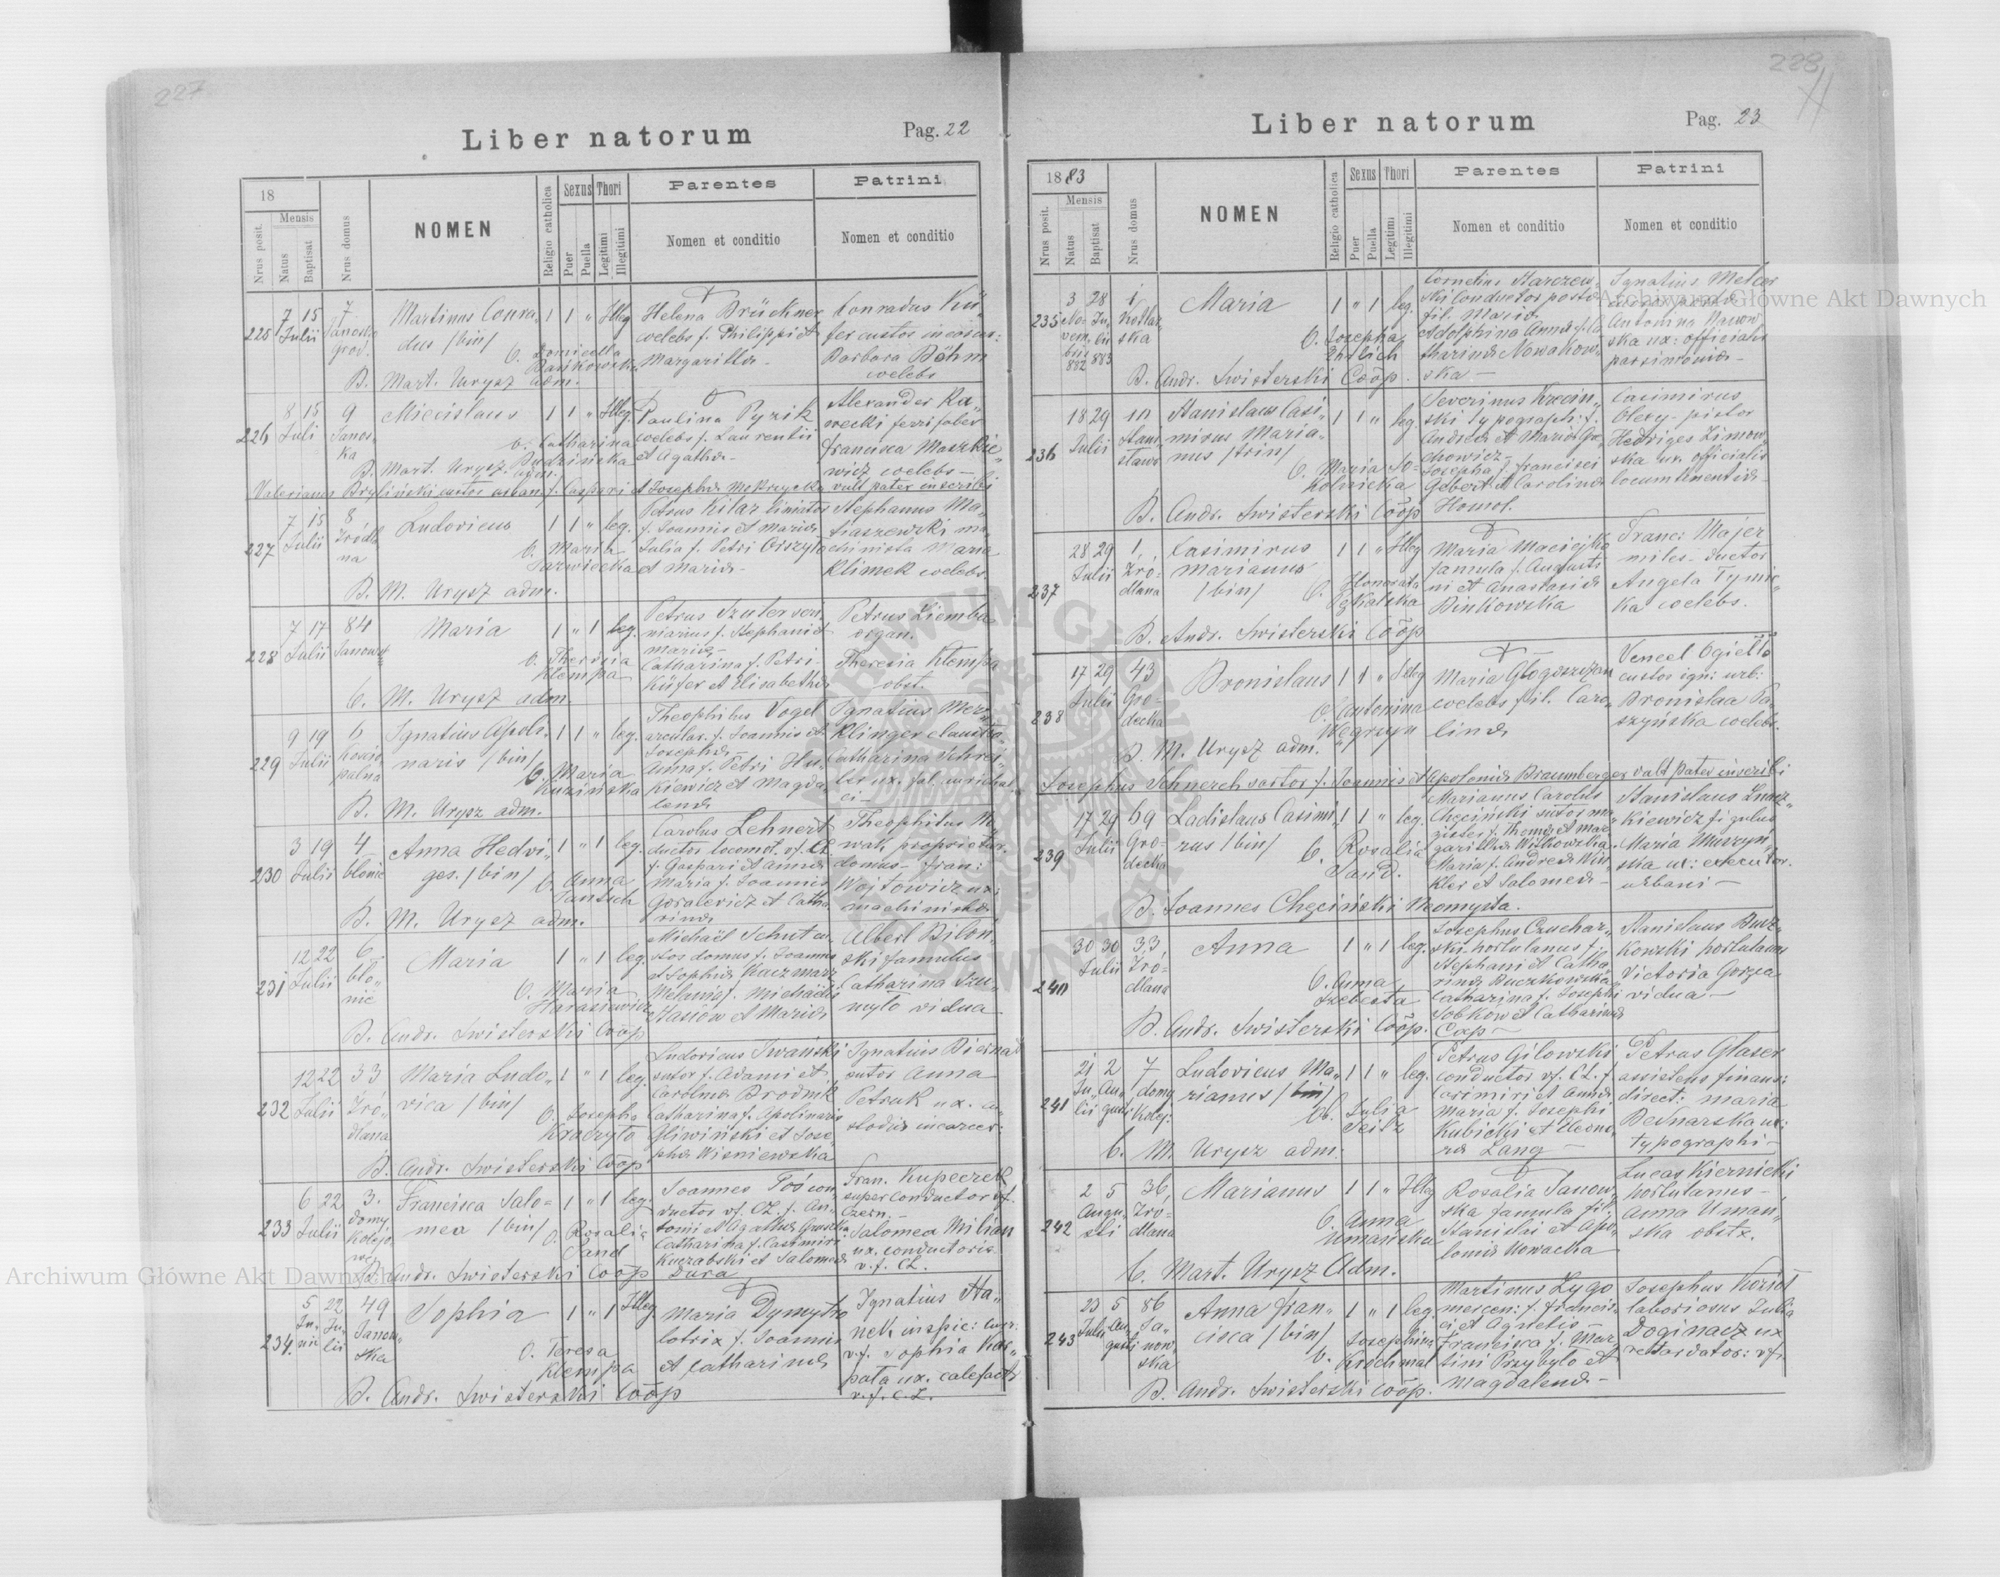 227
Liber natorum
Pag. 22
18
Nrus posit.
Mensis
Natus
Baptisat
Nrus domus
NOMEN
Religio catholica
Sexus
Puer
Puella
Thori
Legitimi
Illegitimi
Parentes
Nomen et conditio
Patrini
Nomen et conditio
225
7 15
Julii
7
Janowska
Grod.
Martinus Conra-
dus /bin/
O. Domicella
Bańkowska
B. Mart. Urysz adm.
1 1 " Illeg
Helena Brückner
coelebs f. Philippi et
Margaritha
Konradus Kü-
fer custos in carcer:
Barbara Böhm
coelebs
226
8 15
Juli
9
Janos-
ka
Miecislaus
O. Catharina
Budzińska
B. Mart. Urysz adm.
1 1 " Illeg
Paulina Pyzik
coelebs f. Laurentii
et Agatha
Alexander Ka-
recki ferrifaber
Francisca Maszkie-
wicz coelebs
Valerianus Bryliński custos urban. f. Caspari et Josepha Mokrzycka vult pater inscribi
227
7 15
Julii
8
Źródla
na
Ludovicus
O. Maria
Tarwiecka
B. M. Urysz adm.
1 1 " leg.
Petrus Kilar
f. Joannis et Maria
Julia f. Petri
et Maria
Stephanus Ma-
tiaszewski ma-
chinista Maria
Klimek coelebs.
228
7 17
Julii
84
Janows
Maria
O. Theresia
Klempa
B. M. Urysz adm.
1 " 1 leg.
Petrus Szuter
f. Stephani et
Maria
Catharina f. Petri
Küfer et Elisabetha
Petrus Ziemba
organ.
Theresia Klempa
obst.
229
9 19
Julii
6
Ignatius Apoli-
naris /bin/
O. Maria
Kuzińska
B. M. Urysz adm.
1 1 " leg.
Theophilus Vogel
arcular. f. Joannis et
Josepha
Anna f. Petri Hu-
kiewicz et Magda
lena
Ignatius Merz-
klinger
Catharina Schrei-
ber ux.
230
3 19
Julii
4
blonie
Anna Hedvi-
ges /bin/
O. Anna
Jantsch
B. M. Urysz adm.
1 " 1 leg.
Carolus Lehnert
ductor locomot. vf. CL
f. Gaspari et Anna
Maria f. Joannis
Goralewicz et Catha
rina
Theophilus No-
wak proprietar.
domus - Fran:
Wojtowicz ux:
machinista
231
12 22
Julii
6
blo-
nie
Maria
O. Maria
Harasiewicz
B. Andr. Swisterski Coop
1 " 1 leg.
Michaël Schut cu-
stos domus f. Joannis
et Sophia Kaczmarz
f. Michaelis
Stasiow et Maria
Albert Bilon-
ski famulus
Catharina Szu-
myło vidua
232
12 22
Julii
33
Źró-
dlana
Maria Ludo-
vica /bin/
O. Josepha
Kraczyło
B. Andr. Swisterski Coop
1 " 1 leg.
Ludovicus Iwański
sutor f. Adami et
Carolina Brodnik
Catharina f. Apolinaris
Gliwiński et Jose-
pha Wisniewska
Ignatius Biernat
sutor Anna
Petruk ux. cu-
stodis incarcer:
233
6 22
Julii
3.
domy
Kolejo
we
Francisca Salo-
mea /bin/
O. Rosalia
Sand
B. Andr. Swisterski Coop
1 " 1 leg.
Joannes Toś con-
ductor vf. CL. f. An-
toni et Agatha
Catharina f. Casimiri
Kuczabski et Salomea
Dura
Fran. Kupeczek
super conductor vf.
Czern. -
Salomea Milian
ux. conductoris
v. f. CL.
234.
5 22
Ju- Ju-
nii lii
49
Janow-
ska
Sophia
O. Teresa
Klempa
B. Andr. Swisterski Coop
1 " 1 Illeg
Maria Dymytro
lotrix f. Joannis
et Catharina
Ignatius Ha-
nek inspic:
v.f. Sophia Kar-
pata ux. calefact.
v.f. C.L.
228
Liber natorum
Pag. 23
1883
Nrus posit.
Mensis
Natus
Baptisat
Nrus domus
NOMEN
Religio catholica
Sexus
Puer
Puella
Thori
Legitimi
Illegitimi
Parentes
Nomen et conditio
Patrini
Nomen et conditio
235
3 28
No- Ju-
vem- lii
bris
882 883
1
Kotlar
ska
Maria
O. Josepha
Ehrlich
B. Andr. Swisterski Coop.
1 " 1 leg.
Cornelius Starczew-
ski conductor posto
fil. Maria
et Adolphina Anna f. Ca
tharina Nowakow-
ska -
Ignatius
Antonina Nanow
ska ux: officialis
parsimonia -
236
18 29
Julii
10
Stani
slawa
Stanislaus Casi-
mirus Maria-
nus /trin/
O. Maria So-
kolnicka
B. Andr. Swisterski Coop
1 1 " leg.
Severinus Krcin-
ski typograph: f.
Andrea et Maria Gro-
chowicz -
Josepha f. Francisci
Gebert et Carolina
Homol.
Casimirus
Olexy - pictor
Hedviges Zimow-
ska ux. officialis
locumtenentia -
237
28 29
Julii
1,
Zro-
dlana
Casimirus
Marianus
/bin/
O. Honorata
Pękalska
B. Andr. Swisterski Coop
1 1 " Illeg
Maria Maciejko
famula f. Augusti
ni et Anastasia
Binkowska
Franc: Majer
miles - ductor
Angela Tynic-
ka coelebs.
238
17 29
Julii
43
Gro-
decka
Bronislaus
O. Antonina
Węgrzyn
B. M. Urysz adm.
1 1 " Illeg
Maria
coelebs fil. Caro-
lina
Vencel Ogietto
custos igni: urb:
Bronislaa Pa-
szyńska coelebs.
Josephus Schnerch sartor f. Joannis et Apolonia Braumberger vult pater inscribi
239
17 29
Julii
69
Gro-
decka
Ladislaus Casimi-
rus /bin/
O. Rosalia
Sand.
B. Joannes Chęciński Neomysta.
1 1 " leg.
Marianus Carolus
Chęciński sutor ma-
gister f. Thoma et Mar
garitha Witkowska
Maria f. Andrea Win
kler et Salomea -
Stanislaus Łucz-
kiewicz figulus
Maria Muszyń-
ska ux: executor.
urbani -
240
30 30
Julii
33,
Źró-
dlana
Anna
O. Anna
Szebesta
B. Andr. Swisterski Coop.
1 " 1 leg.
Josephus Czuchar-
ski hortulanus f.
Stephani et Catha-
rina Buczkowska
Catharina f. Josephi
Sobkow et Catharina
Cap -
Stanislaus Bucz-
kowski hortulanus
Victoria Gorza
vidua -
241
21 2
Ju- Au-
lii gusti
7
domy
Kolej:
Ludovicus Ma-
rianus /bin/
Ob. Julia
Seitz
B. M. Urysz adm.
1 1 " leg.
Petrus Gilowski
conductor vf. CL. f.
Casimiri et Anna
Maria f. Josephi
Kubicki et Eleono-
ra Lang -
Petrus Glaser
assistens finans:
direct: Maria
Bednarska ux:
typographi -
242
2 5
Augu-
sti
36,
Zro-
dlana
Marianus
O. Anna
Umańska
B. Mart. Urysz Adm.
1 1 " Illeg
Rosalia Janow-
ska famula fil.
Stanislai et Apo-
lonia Nowacka
Lucas Kiernicki
hortulanus -
Anna Uman-
ska obstz.
243
23 5
Julii Au-
gusti
86
Ja-
now-
ska
Anna Fran-
cisca /bin/
Josephina
O. Krochmal
B. Andr. Swisterski Coop.
1 " 1 leg.
Martinus Lygo
mercen: f. Francis-
ci et Agnetis -
Francisca f. Mar
tini Przybyło et
Magdalena -
Josephus Kozioł
laboriosus Julia
Doginacz ux
retardator: vf.
Archiwum Główne Akt Dawnych
Archiwum Główne Akt Dawnych
ARCHIWUM GŁÓWNE AKT DAWNYCH